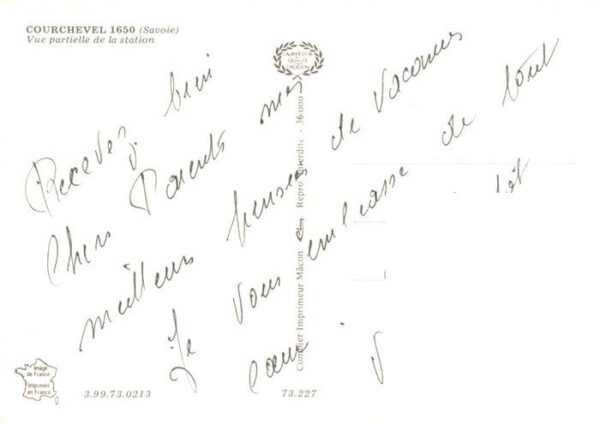 COURCHEVEL 1650 (Savoie)
Vue partielle de la station
LABEL D'OR
DE
QUALITE
Recevez bien
Chers Parents mes
meilleurs pensées de vacances
Je vous embrasse de tout
cœur
Combier Imprimeur Mâcon Repro. Interdite - 36/000
Image
de France
Imprimée
en France
3.99.73.0213
73.227